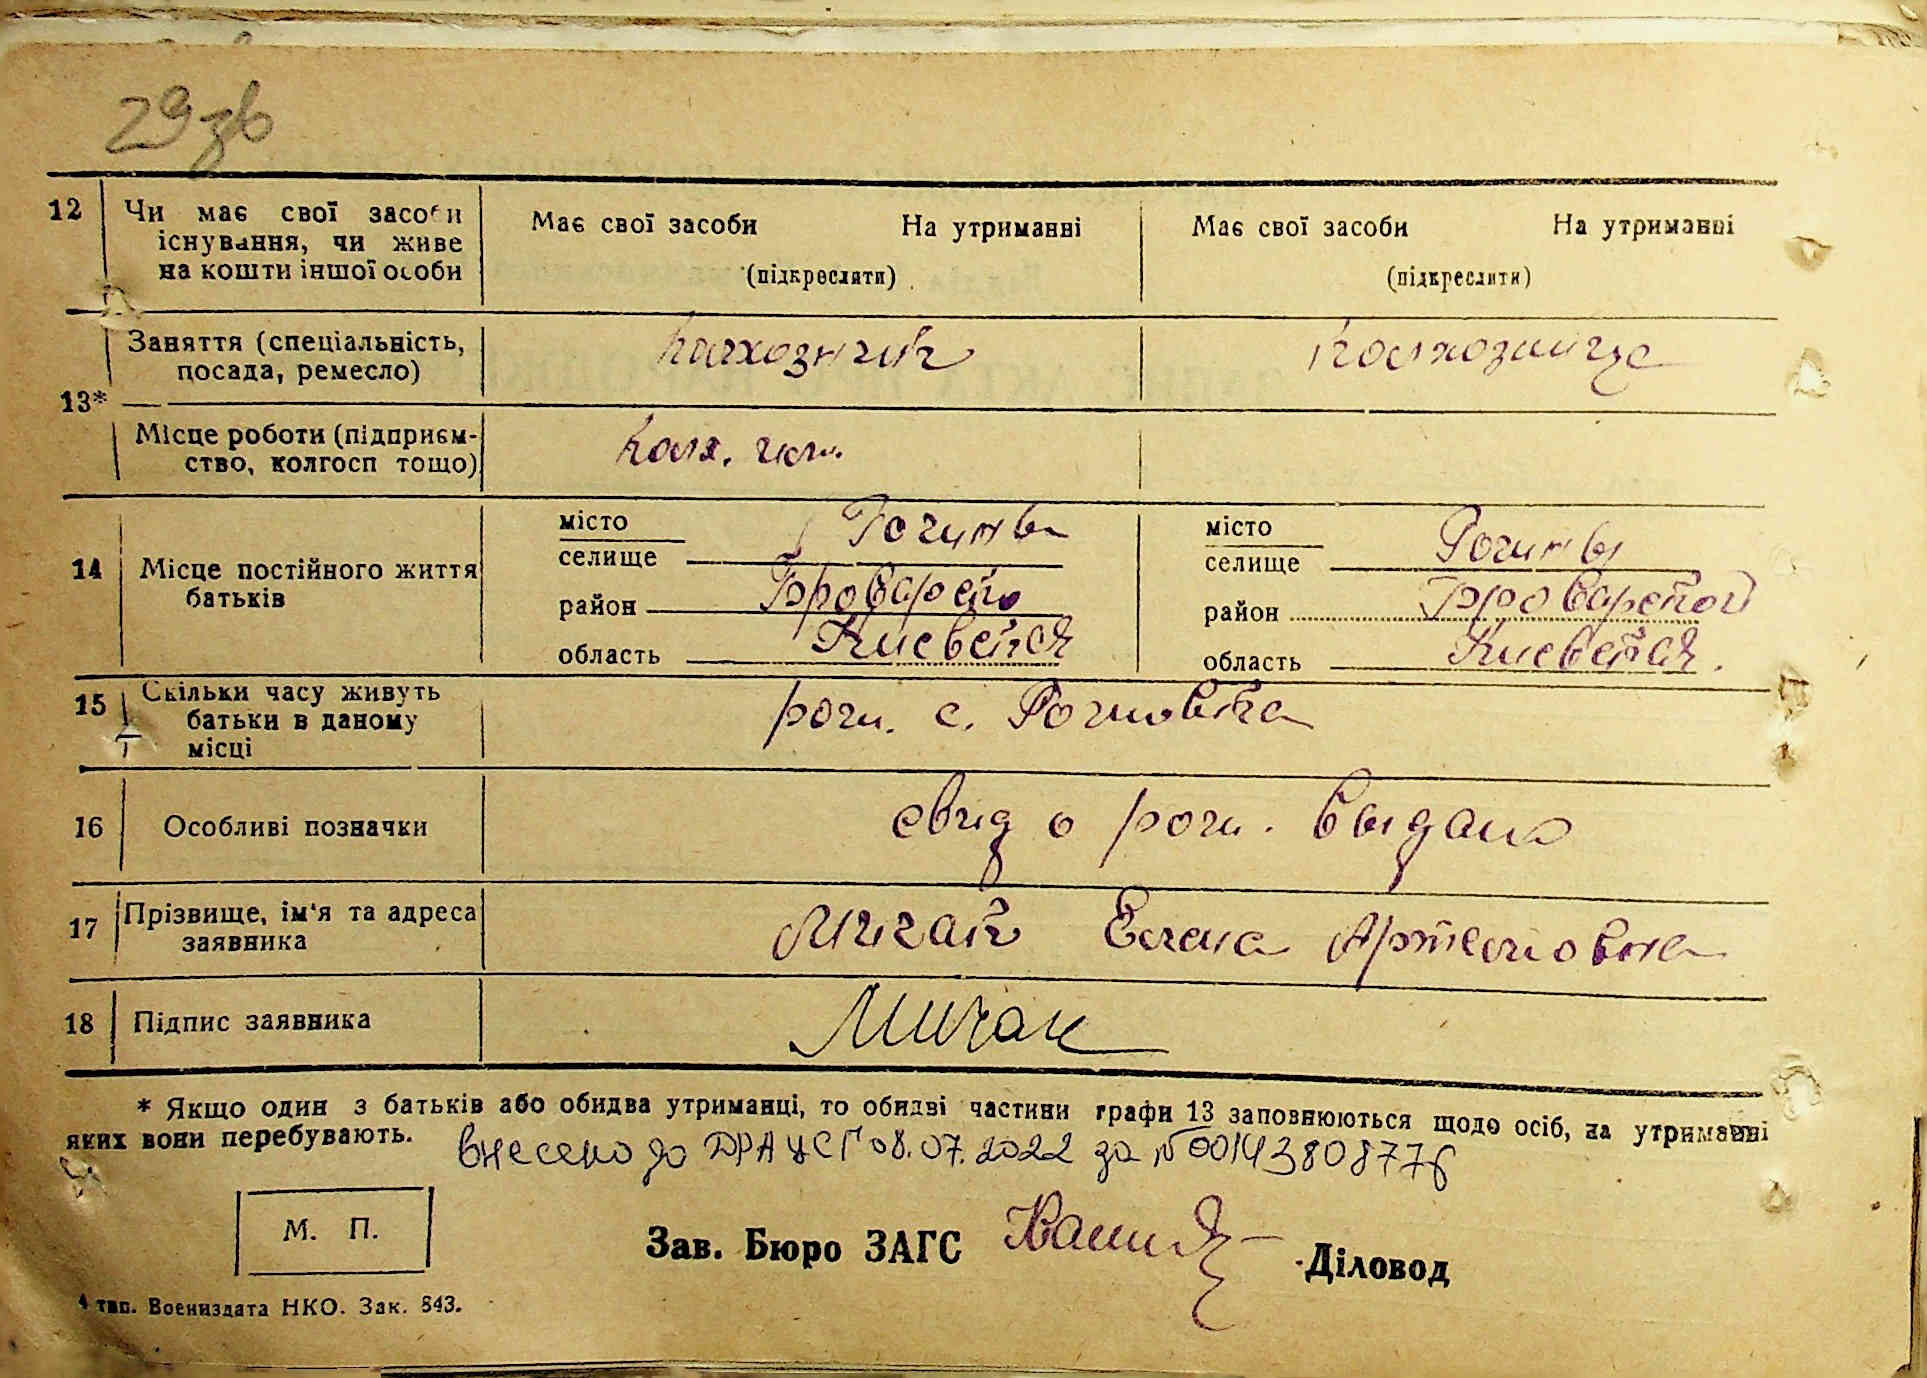 29 зв
12 Чи має свої засоби існування, чи живе на кошти іншої особи
Має свої засоби На утриманні
(підкреслити)
Має свої засоби На утриманні
(підкреслити)
13*
Заняття (спеціальність, посада, ремесло)
колхозник
колхозница
Місце роботи (підприєм-
ство, колгосп тощо)
14 Місце постійного життя батьків
місто
селище
район
область Киевская
місто
селище
район Броварской
область Киевская.
15 Скільки часу живуть
батьки в даному
місці
рогн. с.
16 Особливі позначки
свид о рогн. выдано
17 Прізвище, ім'я та адреса
заявника
Елена Артемовна
18 Підпис заявника
* Якщо один з батьків або обидва утриманці, то обидві частини графи 13 заповнюються щодо осіб, на утриманні
яких вони перебувають.
внесено до ДРАЦСГ 08.07.2022 за № 00143808776
М. П.
Зав. Бюро ЗАГС
Діловод
4 тип. Воениздата НКО. Зак. 843.